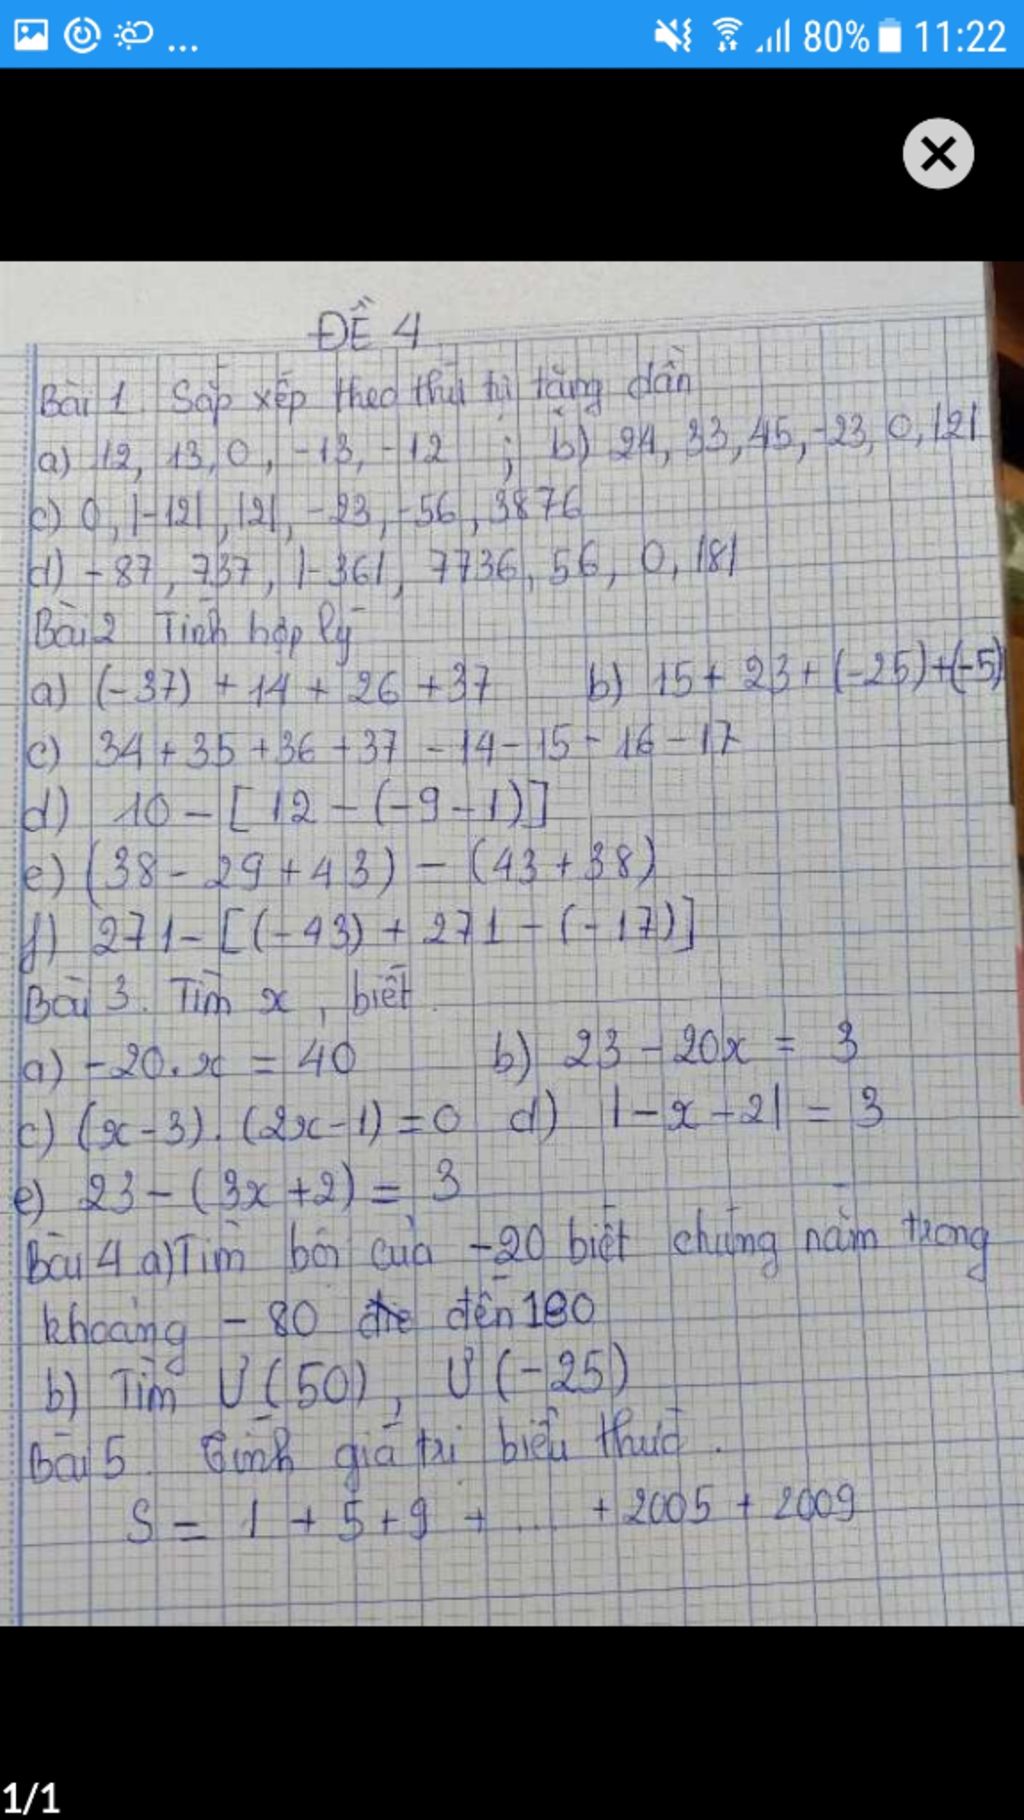 ... 80% 11:22
ĐỀ 4
Bài 1. Sắp xếp theo thứ tự tăng dần
a) 12, 13, 0, -13, -12 ; b) 24, 33, 45, -23, 0, |2|
c) 0, |-12|, |2|, -23, -56, 3876
d) -87, 737, |-36|, 7736, 56, 0, |8|
Bài 2 Tính hợp lý
a) (-37) + 14 + 26 + 37 b) 15 + 23 + (-25) + (-5)
c) 34 + 35 + 36 + 37 - 14 - 15 - 16 - 17
d) 10 - [ 12 - (-9 - 1)]
e) (38 - 29 + 43) - (43 + 38)
f) 271 - [(-43) + 271 - (-17)]
Bài 3. Tìm x, biết
a) -20.x = 40 b) 23 - 20x = 3
c) (x - 3). (2x - 1) = 0 d) |-x - 2| = 3
e) 23 - (3x + 2) = 3
Bài 4 a) Tìm bội của -20 biết chúng nằm trong
khoảng - 80 đến 180
b) Tìm Ư(50), Ư(-25)
Bài 5. Tính giá trị biểu thức.
S = 1 + 5 + 9 + .... + 2005 + 2009
1/1